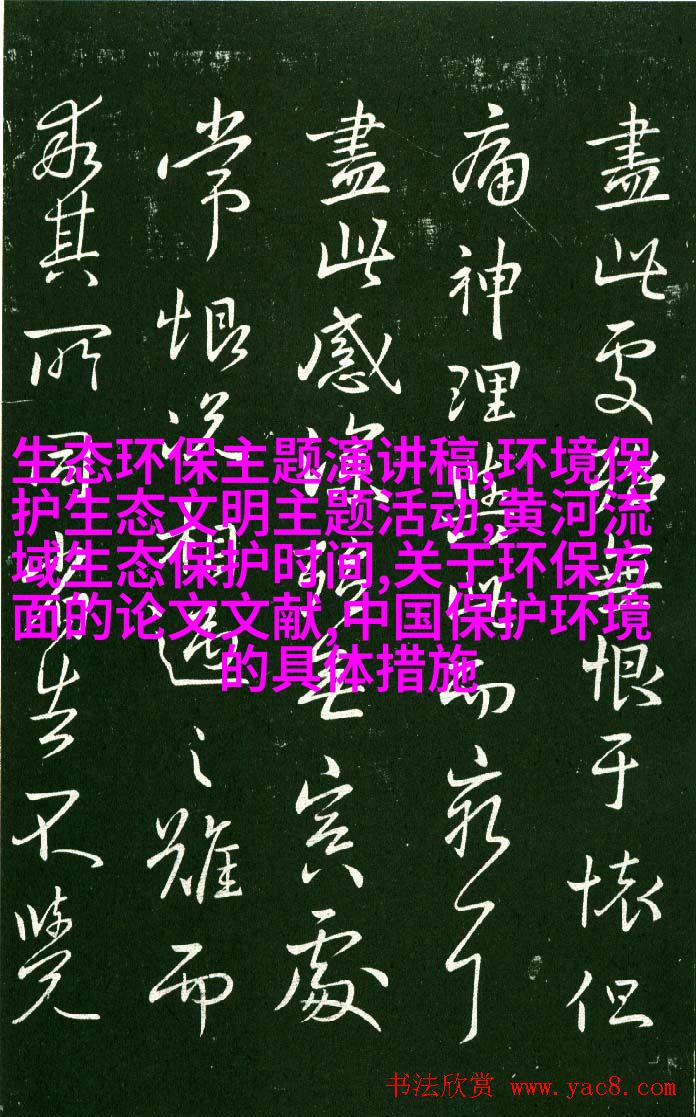 盡此無恨于懷但
痛神理而
盡此感深冥處
常恨相遇之難而
其所同告不覺
生态环保主题演讲稿,环境保
护生态文明主题活动,黄河流
域生态保护时间,关于环保方
面的论文文献,中国保护环境
的具体措施
书法欣赏 www.yac8.com